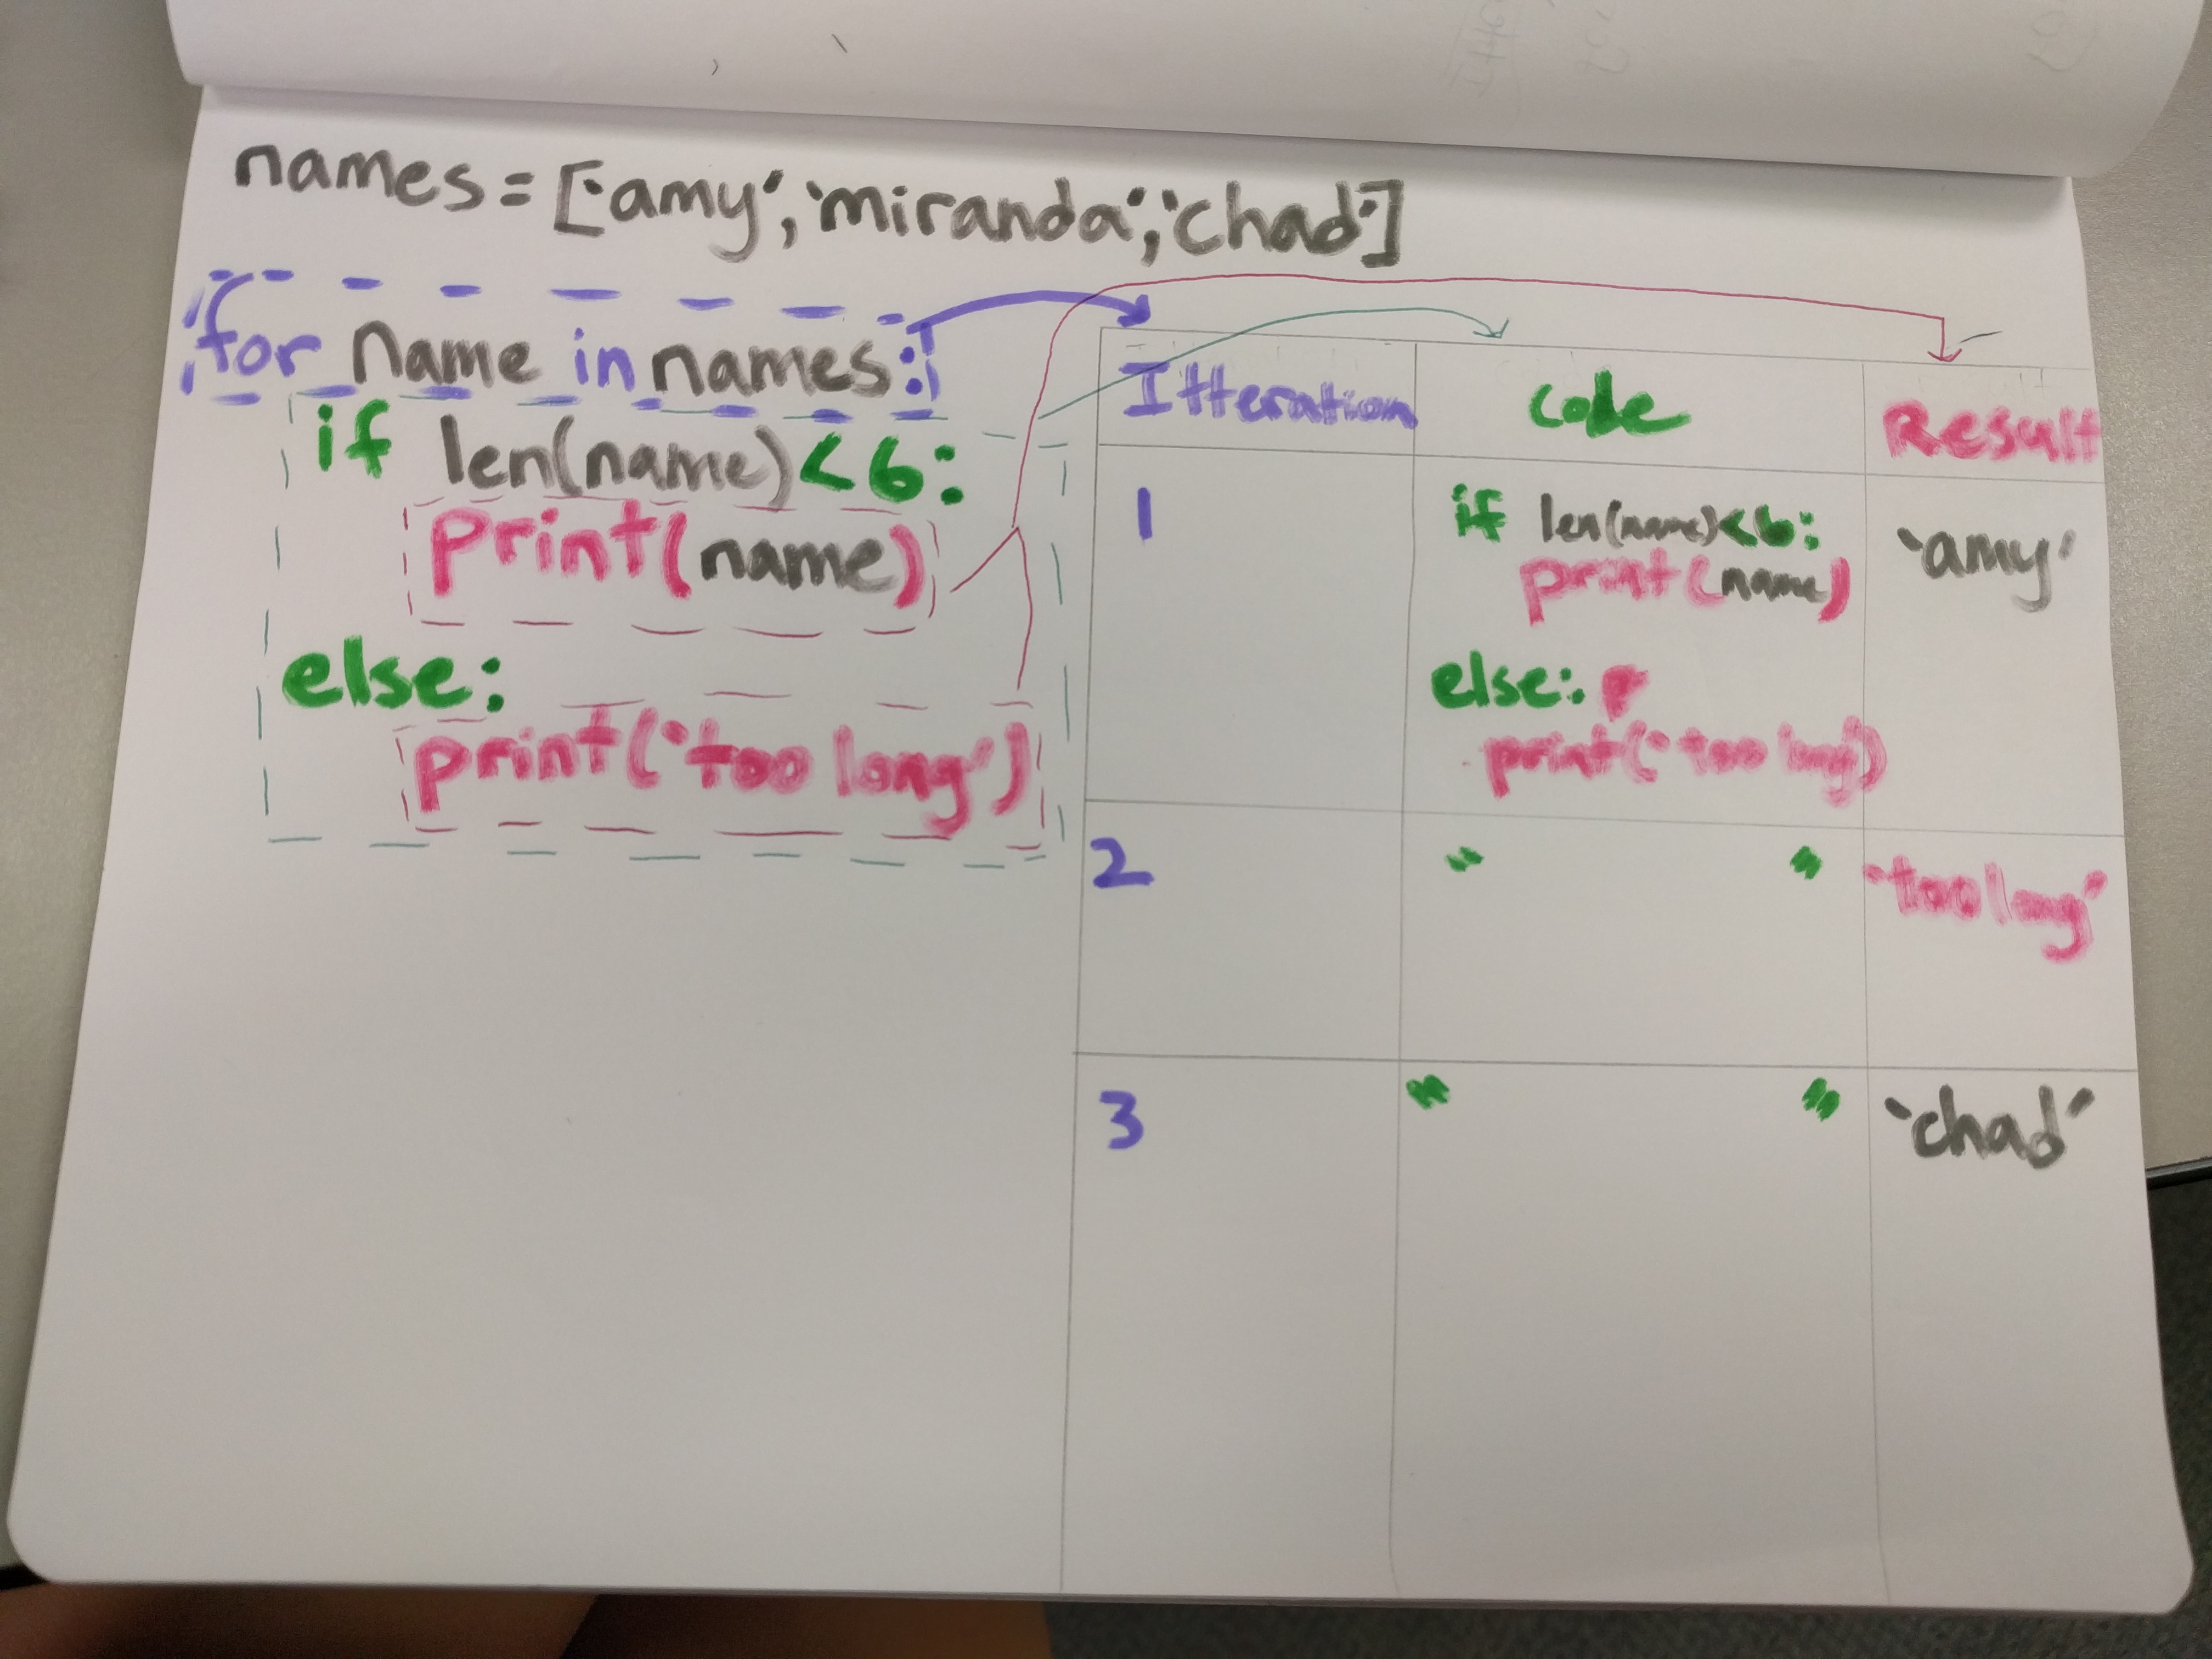 names = ['amy', 'miranda', 'chad']
for name in names:
if len(name) < 6:
print(name)
else:
print('too long')
Itteration code Result
1
if len(name)<6:
print(name)
else: p
print('too long')
'amy'
2 " " 'too long'
3 " " 'chad'